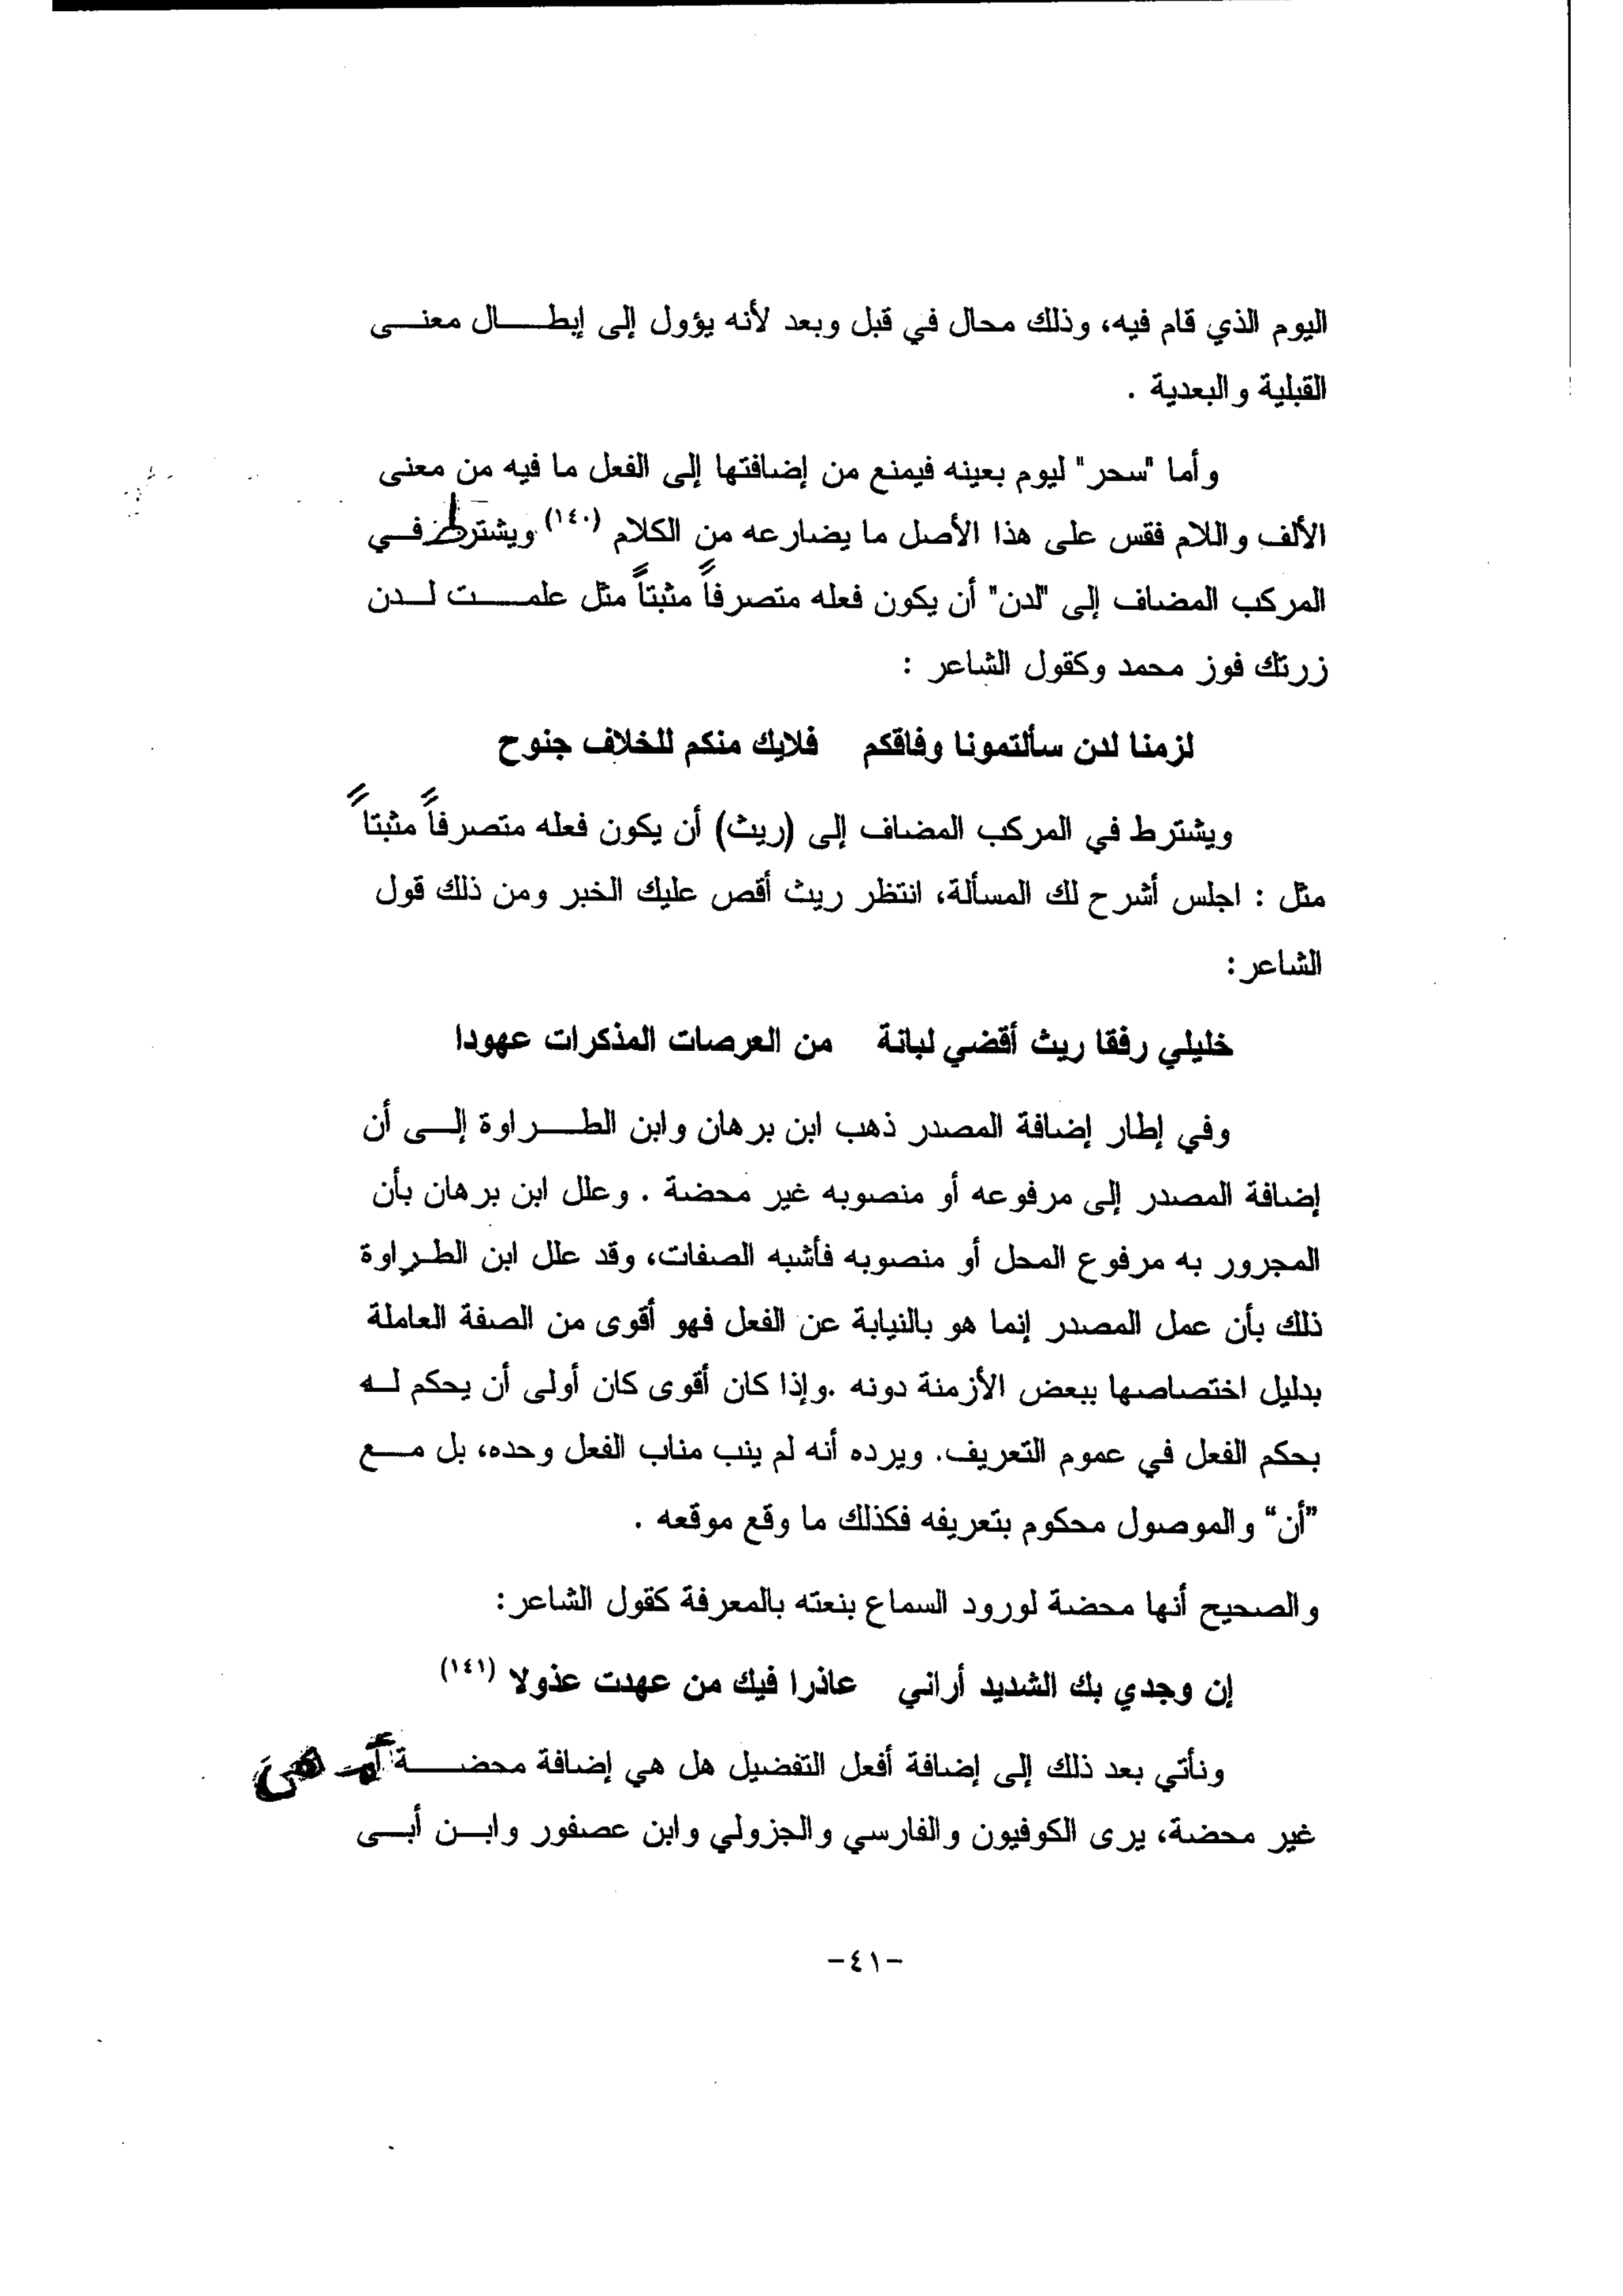 اليوم الذي قام فيه، وذلك محال في قبل وبعد لأنه يؤول إلى إبطال معنى
القبلية والبعدية .
وأما "سحر" ليوم بعينه فيمنع من إضافتها إلى الفعل ما فيه من معنى
الألف واللام فقس على هذا الأصل ما يضارعه من الكلام (١٤٠) ويشترط في
المركب المضاف إلى "لدن" أن يكون فعله متصرفاً مثبتاً مثل علمت لدن
زرتك فوز محمد وكقول الشاعر :
لزمنا لدن سألتمونا وفاقكم فلايك منكم للخلاف جنوح
ويشترط في المركب المضاف إلى (ريث) أن يكون فعله متصرفاً مثبتاً
مثل : اجلس أشرح لك المسألة، انتظر ريث أقص عليك الخبر ومن ذلك قول
الشاعر:
خليلي رفقا ريث أقضي لبانة من العرصات المذكرات عهودا
وفي إطار إضافة المصدر ذهب ابن برهان وابن الطراوة إلى أن
إضافة المصدر إلى مرفوعه أو منصوبه غير محضة . وعلل ابن برهان بأن
المجرور به مرفوع المحل أو منصوبه فأشبه الصفات، وقد علل ابن الطراوة
ذلك بأن عمل المصدر إنما هو بالنيابة عن الفعل فهو أقوى من الصفة العاملة
بدليل اختصاصها ببعض الأزمنة دونه .وإذا كان أقوى كان أولى أن يحكم له
بحكم الفعل في عموم التعريف. ويرده أنه لم ينب مناب الفعل وحده، بل مع
"أن" والموصول محكوم بتعريفه فكذلك ما وقع موقعه .
والصحيح أنها محضة لورود السماع بنعته بالمعرفة كقول الشاعر:
إن وجدي بك الشديد أراني عاذرا فيك من عهدت عذولا (١٤١)
ونأتي بعد ذلك إلى إضافة أفعل التفضيل هل هي إضافة محضة أم هي
غير محضة، يرى الكوفيون والفارسي والجزولي وابن عصفور وابن أبى
-٤١-